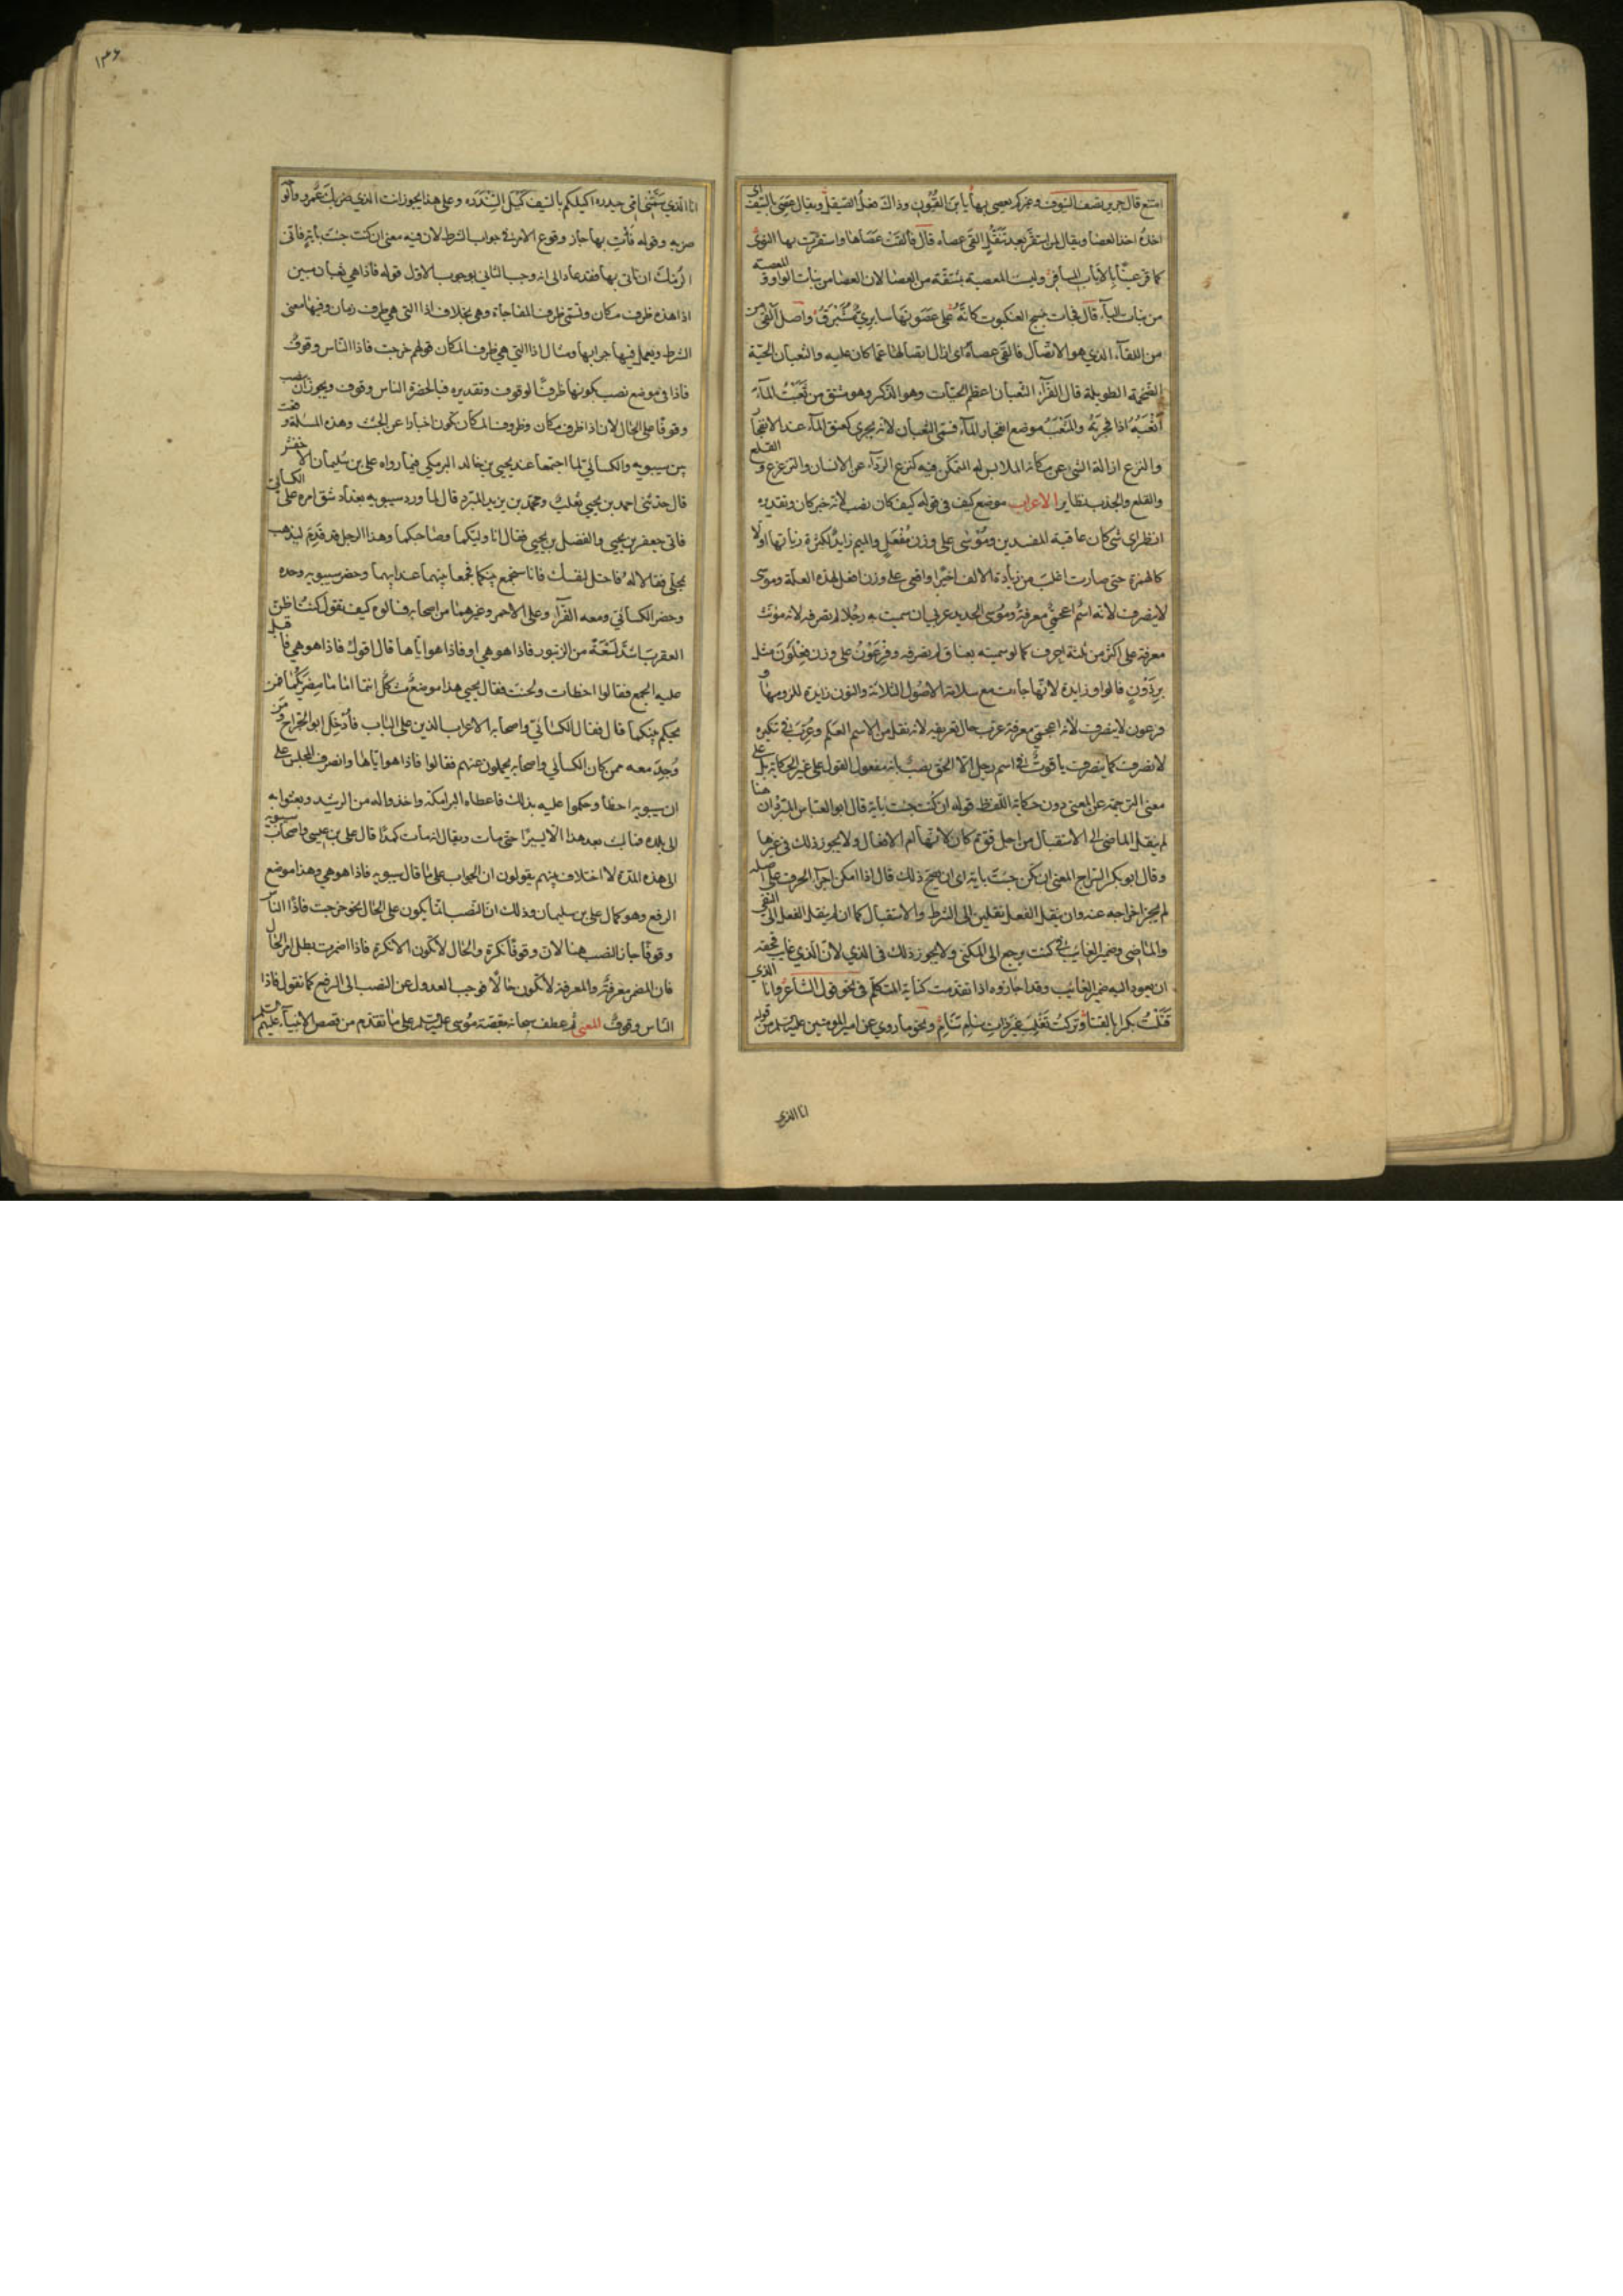 امتنع قال جرير يصف السيوف وغيركم يعصى بها يا ابن القيون وذاك فعل الصيقل ويقال عصى بالسيف اى
اخذه اخذ العصا ويقال لمن استقر بعد تنقل القى عصاه قال فالقت عصاها واستقرت بها النوى
كما قر عينا بالاياب المسافر وليست المعصية بمشتقة من العصا لان العصا من بنات الواو والمعصية
من بنات الياء قال فجات بنسج العنكبوت كانه على عصويها سابري مشبرق واصل القى من
من اللقاء الذي هو الاتصال فالقى عصاه اى ازال اتصالها عما كان عليه والثعبان الحية
الضخمة الطويلة قال الفراء الثعبان اعظم الحيات وهو الذكر وهو مشتق من ثعبت الماء
اثعبه اذا فجرته والمثعب موضع انفجار الماء فسمى الثعبان لانه يجري كعنق الماء عند الانفجار
والنزع ازالة الشى عن مكانه الملابس له المتمكن فيه كنزع الرداء عن الانسان والنزع والقلع
والقلع والجذب نظاير الاعراب موضع كيف في قوله كيف كان نصب لانه خبر كان وتقديره
انظر اى شى كان عاقبة المفسدين وموسى على وزن مفعل والميم زايد لكثرة زيادتها اولا
كالهمزة حتى صارت اغلب من زيادة الالف اخيرا وافعى على وزن افعل لهذه العلة وموسى
لا ينصرف لانه اسم اعجمي معرفة وموسى الحديد عربي ان سميت به رجلا لم تصرفه لانه مونث
معرفة على اكثر من ثلثة احرف كما لو سميته بعناق لم تصرفه وفرعون على وزن فعلون مثل
برذون فالواو زايدة لانها جاءت مع سلامة الاصول الثلاثة والنون زايدة للزومها و
فرعون لا ينصرف لانه اعجمي معرفة عرب حال تعريفه لانه نقل من الاسم العلم وعرب في تنكيره
لانصرف كما ينصرف ياقوت في اسم رجل الا الحق نصب بانه مفعول القول على غير الحكاية بل على
معنى الترجمة عن المعنى دون حكاية اللفظ قوله ان كنت جئت باية قال ابو العباس المبرد ان هنا
لم ينقل الماضى الى الاستقبال من اجل قوة كان لانها ام الافعال ولا يجوز ذلك في غيرها
وقال ابو بكر السراج المعنى ان تكن جئت باية اى ان صح ذلك قال اذا امكن اجراء الحرف على اصله
لم يجز اخراجه عنه وان ينقل الفعل نقلين الى الشرط والاستقبال كما ان لم ينقل الفعل الى النفي
والماضى وضمير الغايب في كنت يرجع الى المكنى ولا يجوز ذلك في الذي لان الذي غايب فحقه
ان يعود اليه ضمير الغايب وقد اجازوه اذا تقدمت كناية المتكلم في نحو قول الشاعر وانا الذي
قتلت بكرا بالقنا وتركت تغلب غير ذات سنام ونحو ما روي عن امير المومنين عليه السلم من قوله
انا الذي
۱۳۶
انا الذي سمتني امي حيدره اكيلكم بالسيف كيل السندره وعلى هذا يجوز انت الذي ضربك عمرو وانما
ضربه وقوله فات بها جاز وقوع الامر في جواب الشرط لان فيه معنى ان كنت جئت باية فاني
الزمك ان تاتى بها فقد عاد الى انه وجب الثاني بوجوب الاول قوله فاذا هي ثعبان مبين
اذا هذه ظرف مكان وتسمى ظرف المفاجاة وهي بخلاف اذا التى هي ظرف زمان وفيها معنى
الشرط ويعمل فيها جوابها ومثال اذا التي هي ظرف المكان قولهم خرجت فاذا الناس وقوف
فاذا في موضع نصب بكونها ظرفا لوقوف وتقديره فبالحضرة الناس وقوف ويجوز ان تنصب
وقوفا على الحال لان اذا ظرف مكان وظروف المكان تكون اخبارا عن الجثث وهذه المسئلة وقعت
بين سيبويه والكسائي لما اجتمعا عند يحيى بن خالد البرمكي فيما رواه على بن سليمان الاخفش
قال حدثني احمد بن يحيى ثعلب ومحمد بن يزيد المبرد قال لما ورد سيبويه بغداد شق امره على الكسائي
فاتى جعفر بن يحيى والفضل بن يحيى فقال انا وليكما وصاحبكما وهذا الرجل قد قدم ليذهب
بمحلى فقالا له فاحتل لنفسك فانا سنجمع بينكما فجمعا بينهما عند ابيهما وحضر سيبويه وحده
وحضر الكسائي ومعه الفراء وعلى الاحمر وغيرهما من اصحابه فسالوه كيف تقول كنت اظن
العقرب اشد لسعة من الزنبور فاذا هو هي او فاذا هو اياها قال اقول فاذا هو هي فاقبل
عليه الجمع فقالوا اخطات ولحنت فقال يحيى هذا موضع مشكل انتما اماما مصريكما فمن
يحكم بينكما قال فقال الكسائي واصحابه الاعراب الذين على الباب فادخل ابو الجراح ومن
وجد معه ممن كان الكسائي واصحابه يحملون عنهم فقالوا فاذا هو اياها وانصرف المجلس على
ان سيبويه اخطا وحكموا عليه بذلك فاعطاه البرامكة واخذوا له من الرشيد وبعثوا به
الى بلده فما لبث بعد هذا الا يسيرا حتى مات ويقال انه مات كمدا قال على بن عيسى واصحاب سيبويه
الى هذه المدة لا اختلاف بينهم يقولون ان الجواب على ما قال سيبويه فاذا هو هي وهذا موضع
الرفع وهو كما قال على بن سليمان وذلك ان النصب انما يكون على الحال نحو خرجت فاذا الناس
وقوفا جاز النصب ههنا لان وقوفا نكرة والحال لا تكون الا نكرة فاذا اضمرت بطل امر الحال
فان المضمر معرفة والمعرفة لا تكون حالا فوجب العدول عن النصب الى الرفع كما تقول فاذا
الناس وقوف المعنى ثم عطف سبحانه بقصة موسى عليه السلم على ما تقدم من قصص الانبياء عليهم السلم